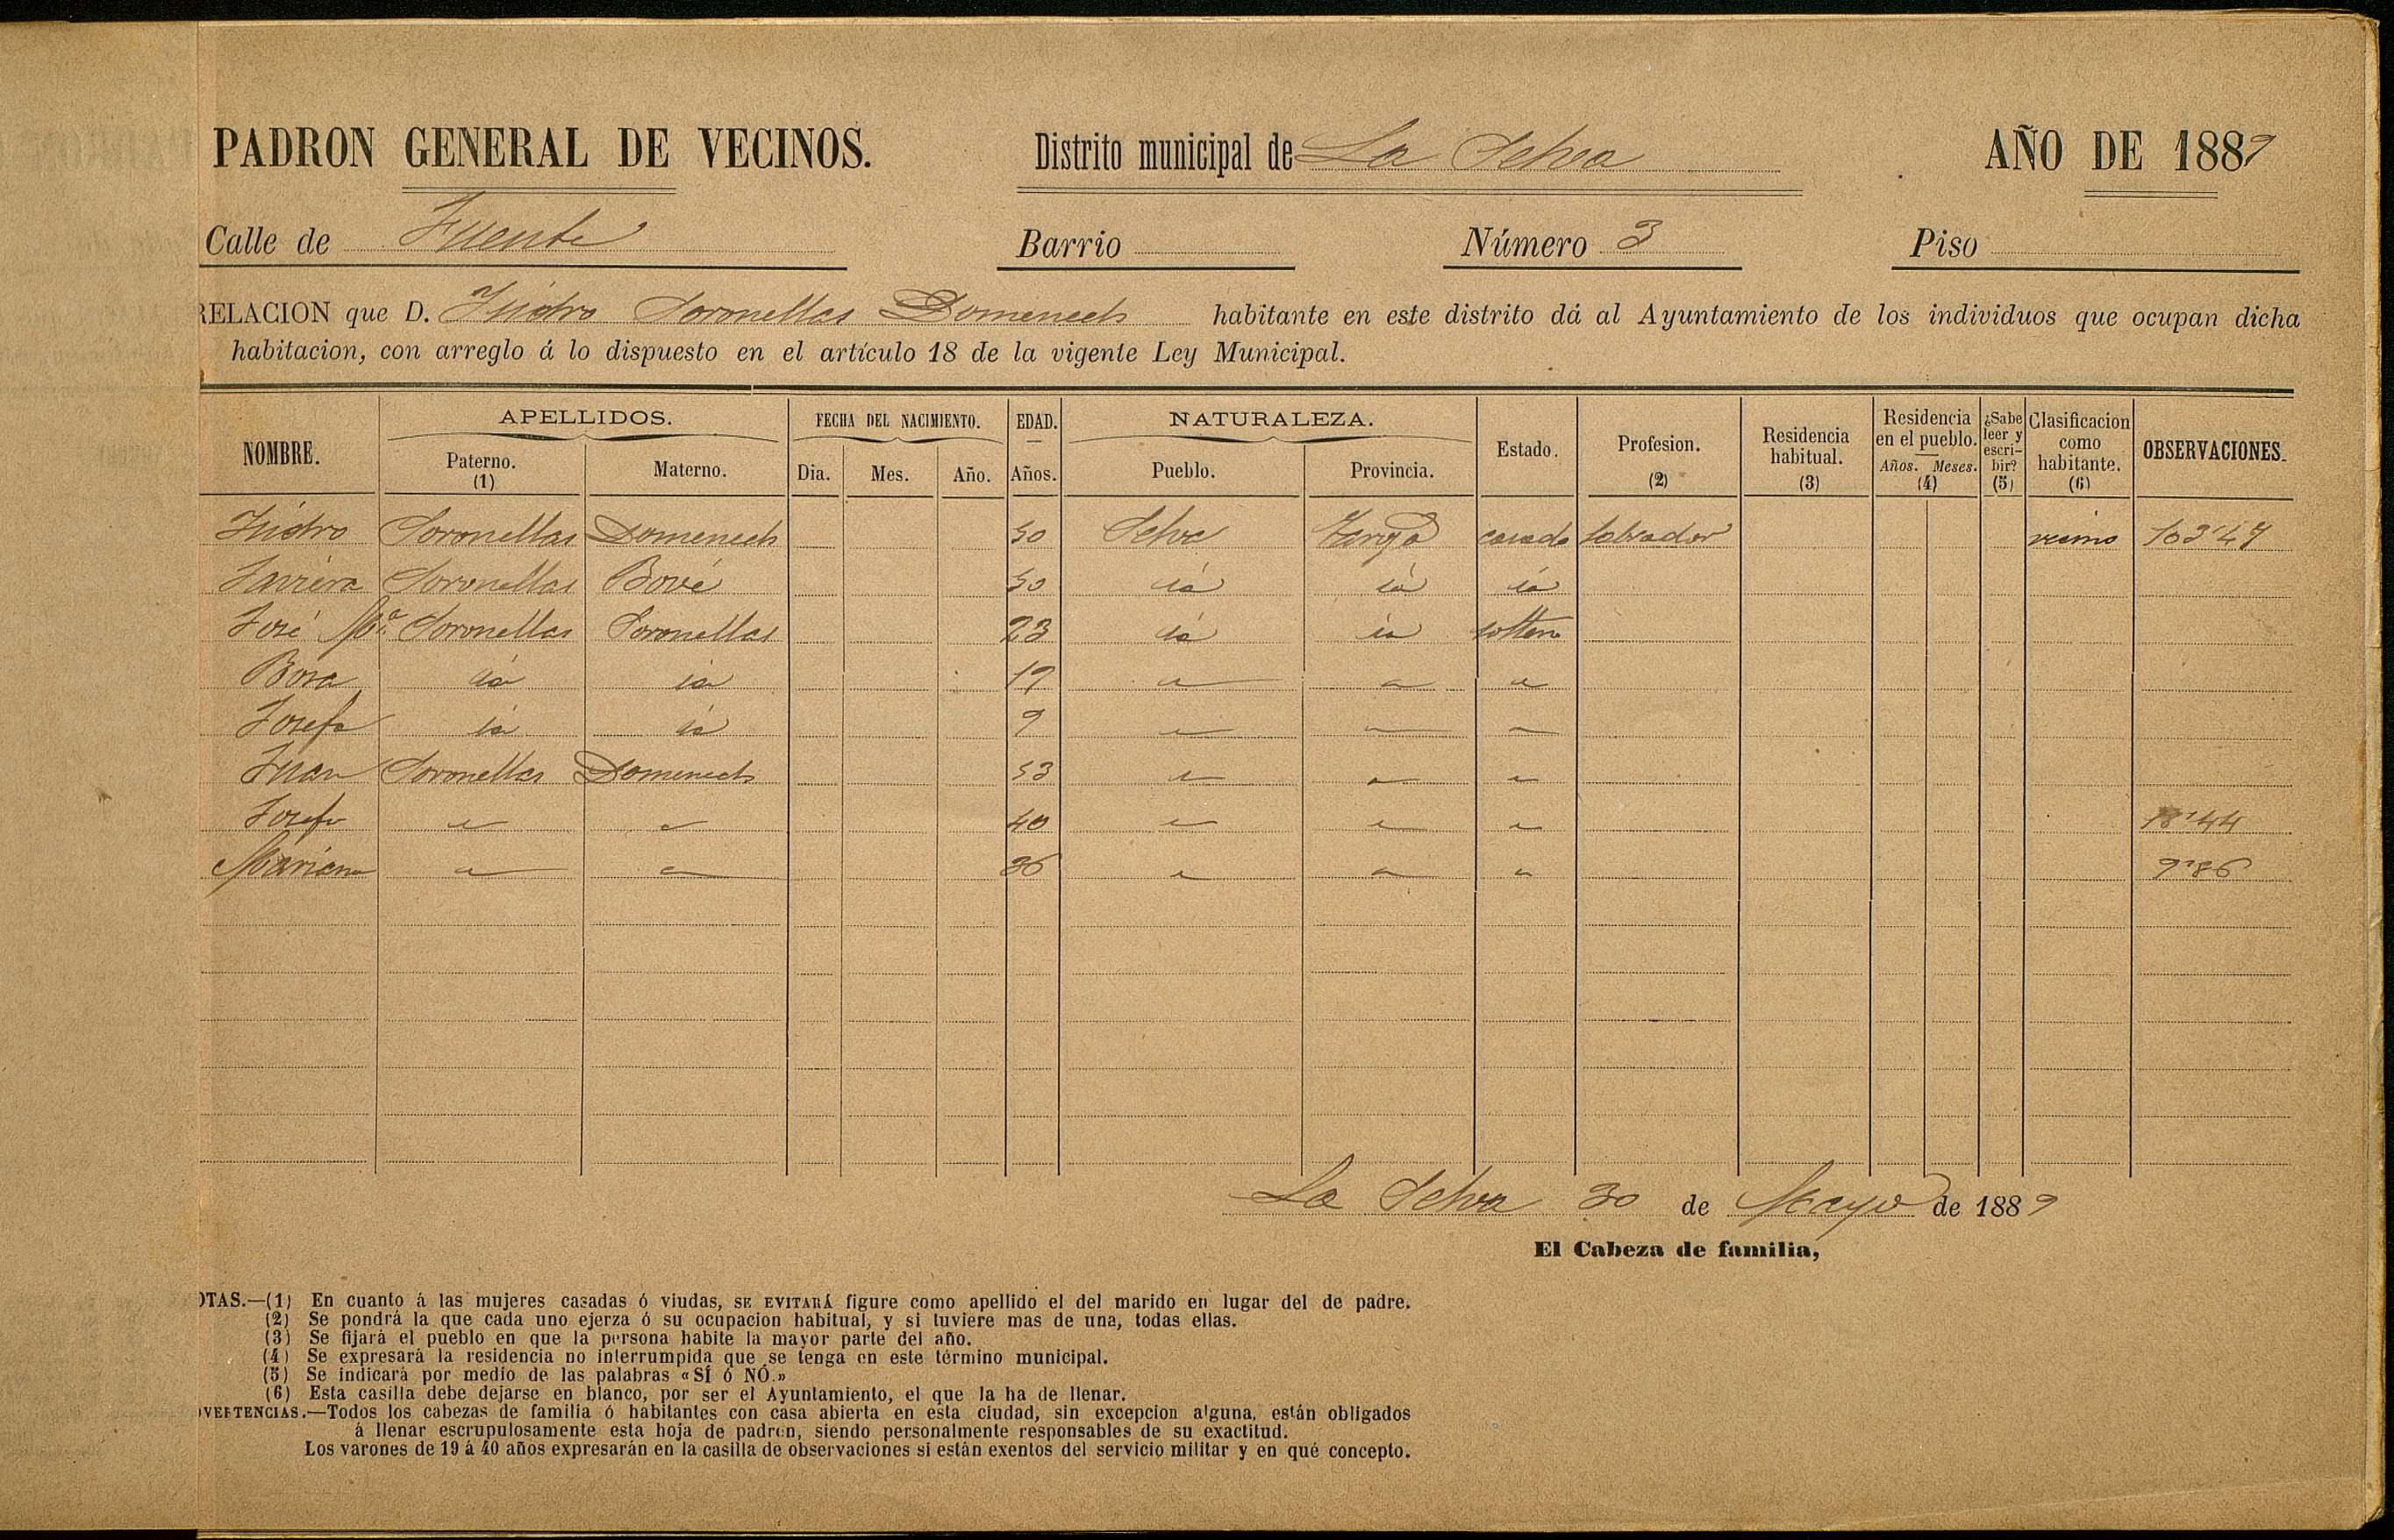 PADRON GENERAL DE VECINOS. Distrito municipal de La Selva AÑO DE 1889
Calle de Fuente Barrio Número 3 Piso
RELACION que D. Isidro Soronellas Domenech habitante en este distrito dá al Ayuntamiento de los individuos que ocupan dicha
habitacion, con arreglo á lo dispuesto en el artículo 18 de la vigente Ley Municipal.
NOMBRE. APELLIDOS. FECHA DEL NACIMIENTO. EDAD. NATURALEZA. Estado. Profesion. (2) Residencia habitual. (3) Residencia en el pueblo. Años. Meses. (4) ¿Sabe leer y escribir? (5) Clasificacion como habitante. (6) OBSERVACIONES.
Paterno. (1) Materno. Dia. Mes. Año. Años. Pueblo. Provincia.
Isidro Soronellas Domenech 50 Selva casado labrador vecino 103'47
Javiera Soronellas Bové 50 id id id
José Mª Soronellas Soronellas 23 id id soltero
id id 19 " " "
Josefa id id 9 " " "
Juan Soronellas Domenech 53 " " "
Josefa " " 40 " " " 18'44
Mariana " " 36 " " " 9'86
La Selva 30 de Mayo de 1889
El Cabeza de familia,
OTAS.—(1) En cuanto á las mujeres casadas ó viudas, SE EVITARÁ figure como apellido el del marido en lugar del de padre.
(2) Se pondrá la que cada uno ejerza ó su ocupacion habitual, y si tuviere mas de una, todas ellas.
(3) Se fijará el pueblo en que la persona habite la mayor parte del año.
(4) Se expresará la residencia no interrumpida que se tenga en este término municipal.
(5) Se indicará por medio de las palabras «SÍ ó NÓ.»
(6) Esta casilla debe dejarse en blanco, por ser el Ayuntamiento, el que la ha de llenar.
DVERTENCIAS.—Todos los cabezas de familia ó habitantes con casa abierta en esta ciudad, sin excepcion alguna, están obligados
á llenar escrupulosamente esta hoja de padron, siendo personalmente responsables de su exactitud.
Los varones de 19 á 40 años expresarán en la casilla de observaciones si están exentos del servicio militar y en qué concepto.